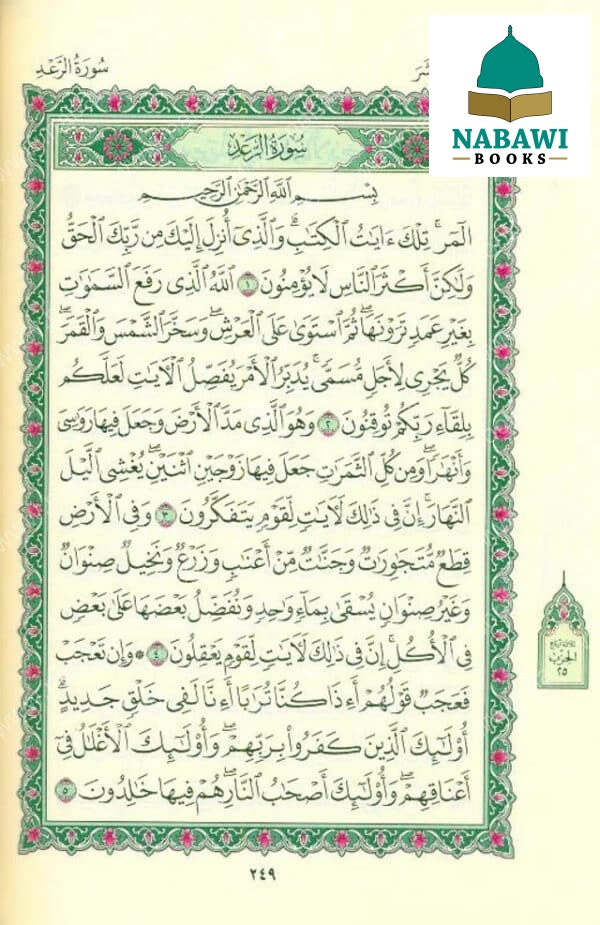 سُورَةُ الرَّعْدِ
NABAWI
BOOKS
سُورَةُ الرَّعْدِ
بِسْمِ ٱللَّهِ ٱلرَّحْمَٰنِ ٱلرَّحِيمِ
الٓمٓر ۚ تِلْكَ ءَايَٰتُ ٱلْكِتَٰبِ ۗ وَٱلَّذِىٓ أُنزِلَ إِلَيْكَ مِن رَّبِّكَ ٱلْحَقُّ
وَلَٰكِنَّ أَكْثَرَ ٱلنَّاسِ لَا يُؤْمِنُونَ ١ ٱللَّهُ ٱلَّذِى رَفَعَ ٱلسَّمَٰوَٰتِ
بِغَيْرِ عَمَدٍ تَرَوْنَهَا ۖ ثُمَّ ٱسْتَوَىٰ عَلَى ٱلْعَرْشِ ۖ وَسَخَّرَ ٱلشَّمْسَ وَٱلْقَمَرَ ۖ
كُلٌّ يَجْرِى لِأَجَلٍ مُّسَمًّى ۚ يُدَبِّرُ ٱلْأَمْرَ يُفَصِّلُ ٱلْءَايَٰتِ لَعَلَّكُم
بِلِقَآءِ رَبِّكُمْ تُوقِنُونَ ٢ وَهُوَ ٱلَّذِى مَدَّ ٱلْأَرْضَ وَجَعَلَ فِيهَا رَوَٰسِىَ
وَأَنْهَٰرًا ۖ وَمِن كُلِّ ٱلثَّمَرَٰتِ جَعَلَ فِيهَا زَوْجَيْنِ ٱثْنَيْنِ ۖ يُغْشِى ٱلَّيْلَ
ٱلنَّهَارَ ۚ إِنَّ فِى ذَٰلِكَ لَءَايَٰتٍ لِّقَوْمٍ يَتَفَكَّرُونَ ٣ وَفِى ٱلْأَرْضِ
قِطَعٌ مُّتَجَٰوِرَٰتٌ وَجَنَّٰتٌ مِّنْ أَعْنَٰبٍ وَزَرْعٌ وَنَخِيلٌ صِنْوَانٌ
وَغَيْرُ صِنْوَانٍ يُسْقَىٰ بِمَآءٍ وَٰحِدٍ وَنُفَضِّلُ بَعْضَهَا عَلَىٰ بَعْضٍ
فِى ٱلْأُكُلِ ۚ إِنَّ فِى ذَٰلِكَ لَءَايَٰتٍ لِّقَوْمٍ يَعْقِلُونَ ٤ ۞ وَإِن تَعْجَبْ
فَعَجَبٌ قَوْلُهُمْ أَءِذَا كُنَّا تُرَٰبًا أَءِنَّا لَفِى خَلْقٍ جَدِيدٍ ۗ
أُو۟لَٰٓئِكَ ٱلَّذِينَ كَفَرُوا۟ بِرَبِّهِمْ ۖ وَأُو۟لَٰٓئِكَ ٱلْأَغْلَٰلُ فِىٓ
أَعْنَاقِهِمْ ۖ وَأُو۟لَٰٓئِكَ أَصْحَٰبُ ٱلنَّارِ ۖ هُمْ فِيهَا خَٰلِدُونَ ٥
الحزب
٢٥
٢٤٩